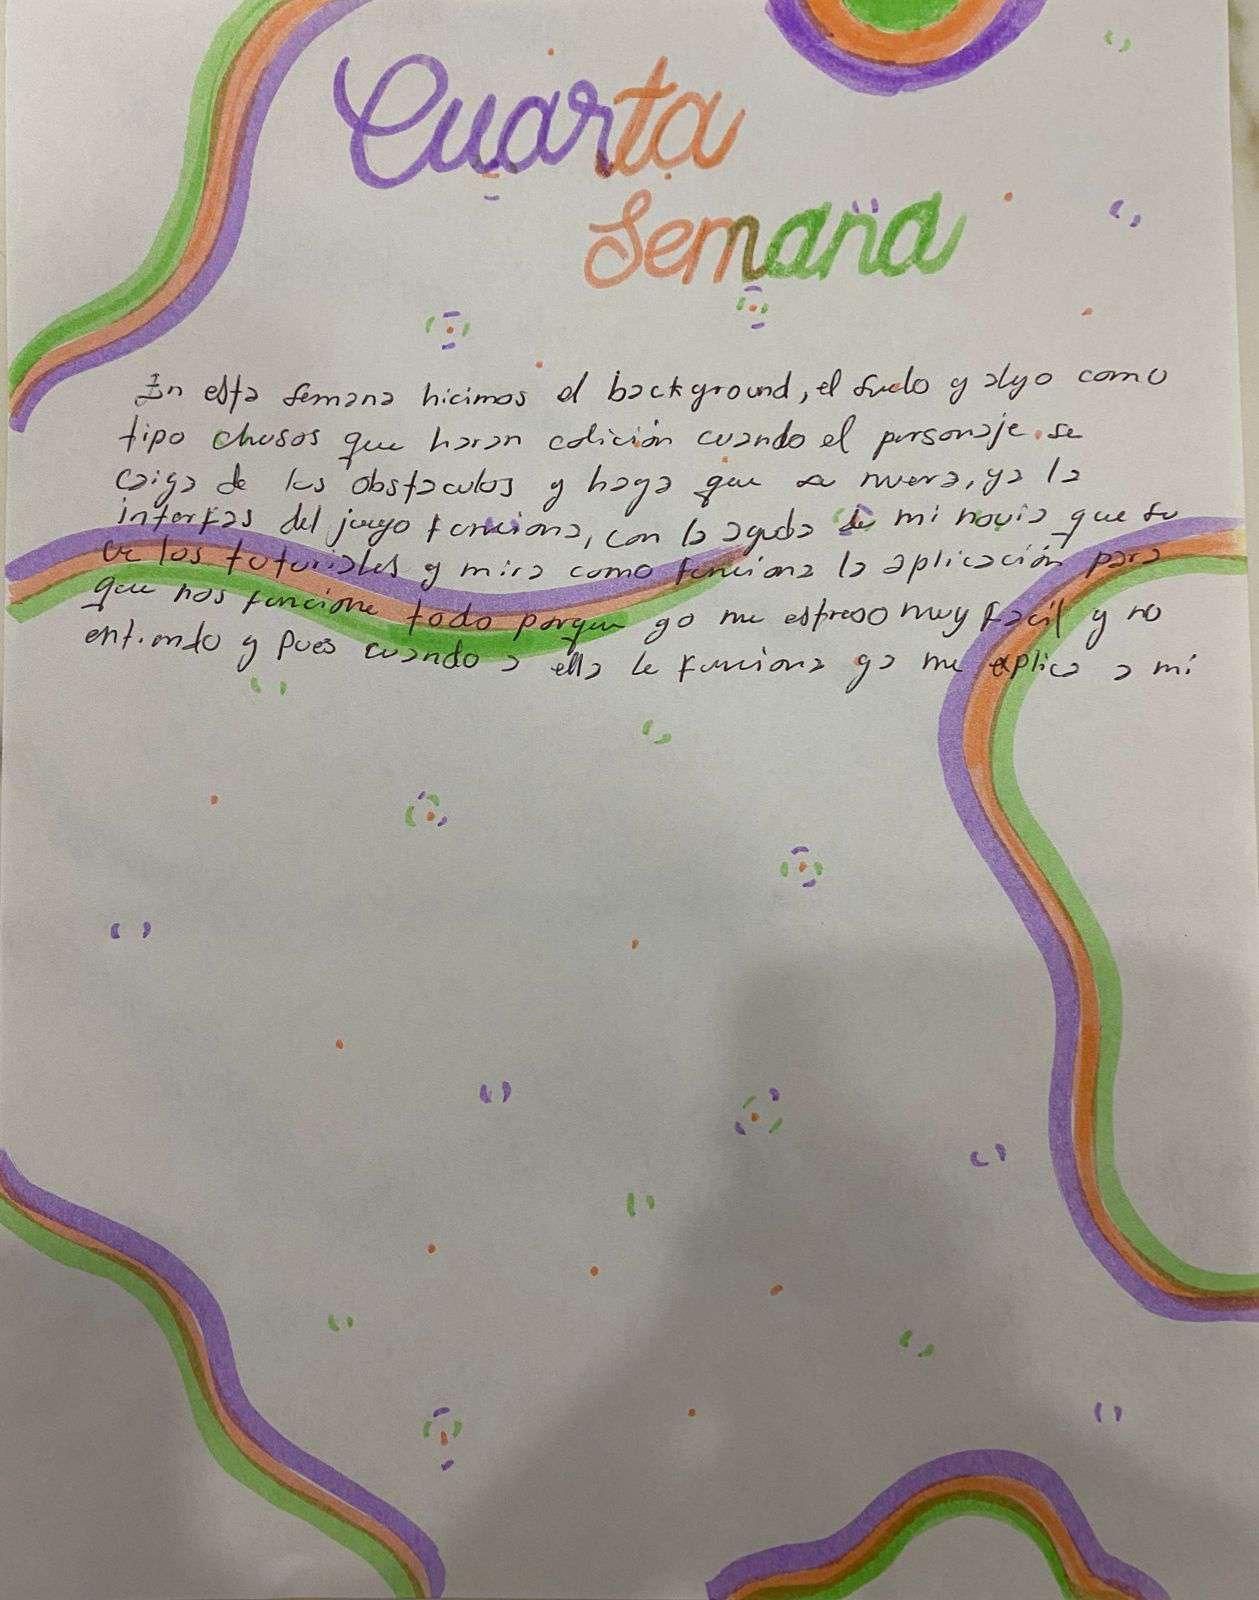 Cuarta
Semana
En esta semana hicimos el background, el suelo y algo como
tipo chusos que haran colición cuando el personaje se
caiga de los obstaculos y haga que se muera, ya la
interfas del juego funciona, con la ayuda de mi novia que se
ve los tutoriales y mira como funciona la aplicación para
que nos funcione todo porque yo me estreso muy facil y no
entiendo y pues cuando a ella le funciona ya me explica a mi